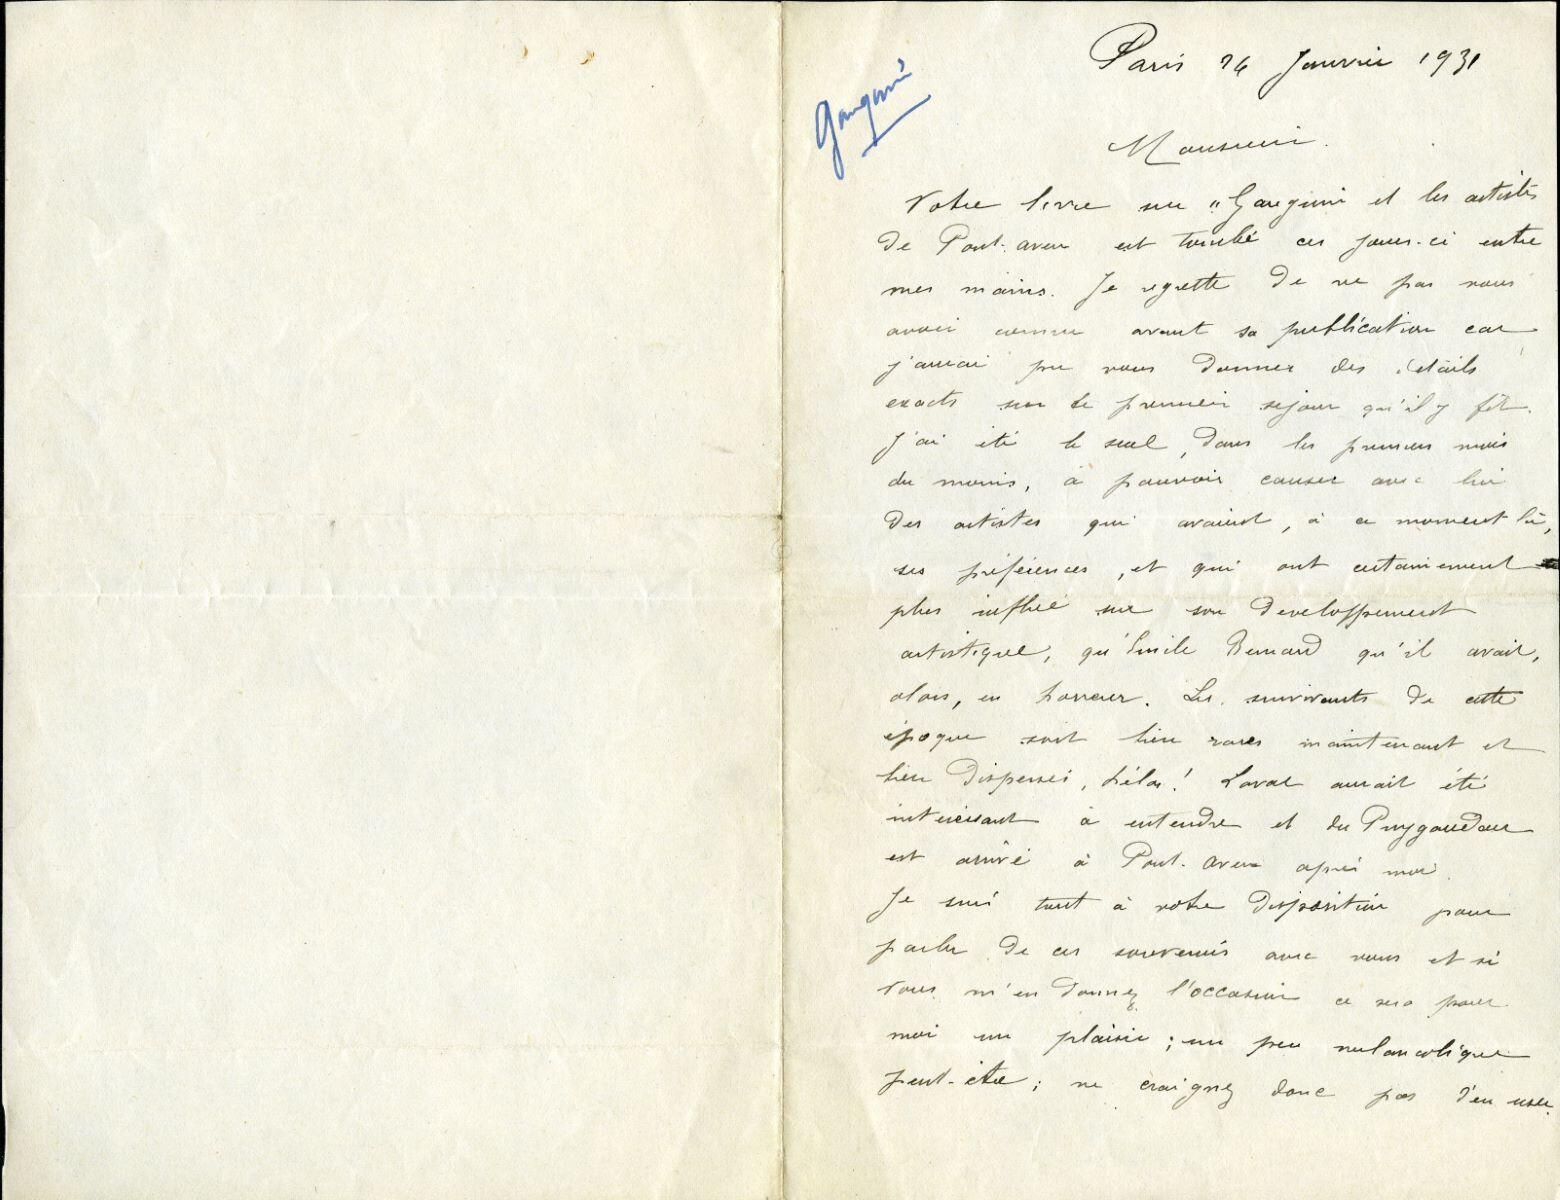 Paris 26 Janvier 1931
Gauguin
Monsieur.
Votre livre sur "Gauguin et les artistes
de Pont-Aven est tombé ces jours-ci entre
mes mains. Je regrette de ne pas vous
avoir connu avant sa publication car
j'aurai pu vous donner des détails
exacts sur le premier sejour qu'il y fit.
J'ai été le seul, dans les premiers mois
du moins, à pouvoir causer avec lui
des artistes qui avaient, à ce moment là,
ses préférences, et qui ont certainement
plus influé sur son developpement
artistique, qu'Emile Bernard qu'il avait,
alors, en horreur. Les survivants de cette
époque sont bien rares maintenant et
bien dispersés, hélas! Laval aurait été
interessant à entendre et du Puygaudau
est arrivé à Pont-Aven après moi.
Je suis tout à votre disposition pour
parler de ces souvenirs avec vous et si
vous m'en donnez l'occasion ce sera pour
moi un plaisir; un peu melancolique
peut-être; ne craignez donc pas d'en user.